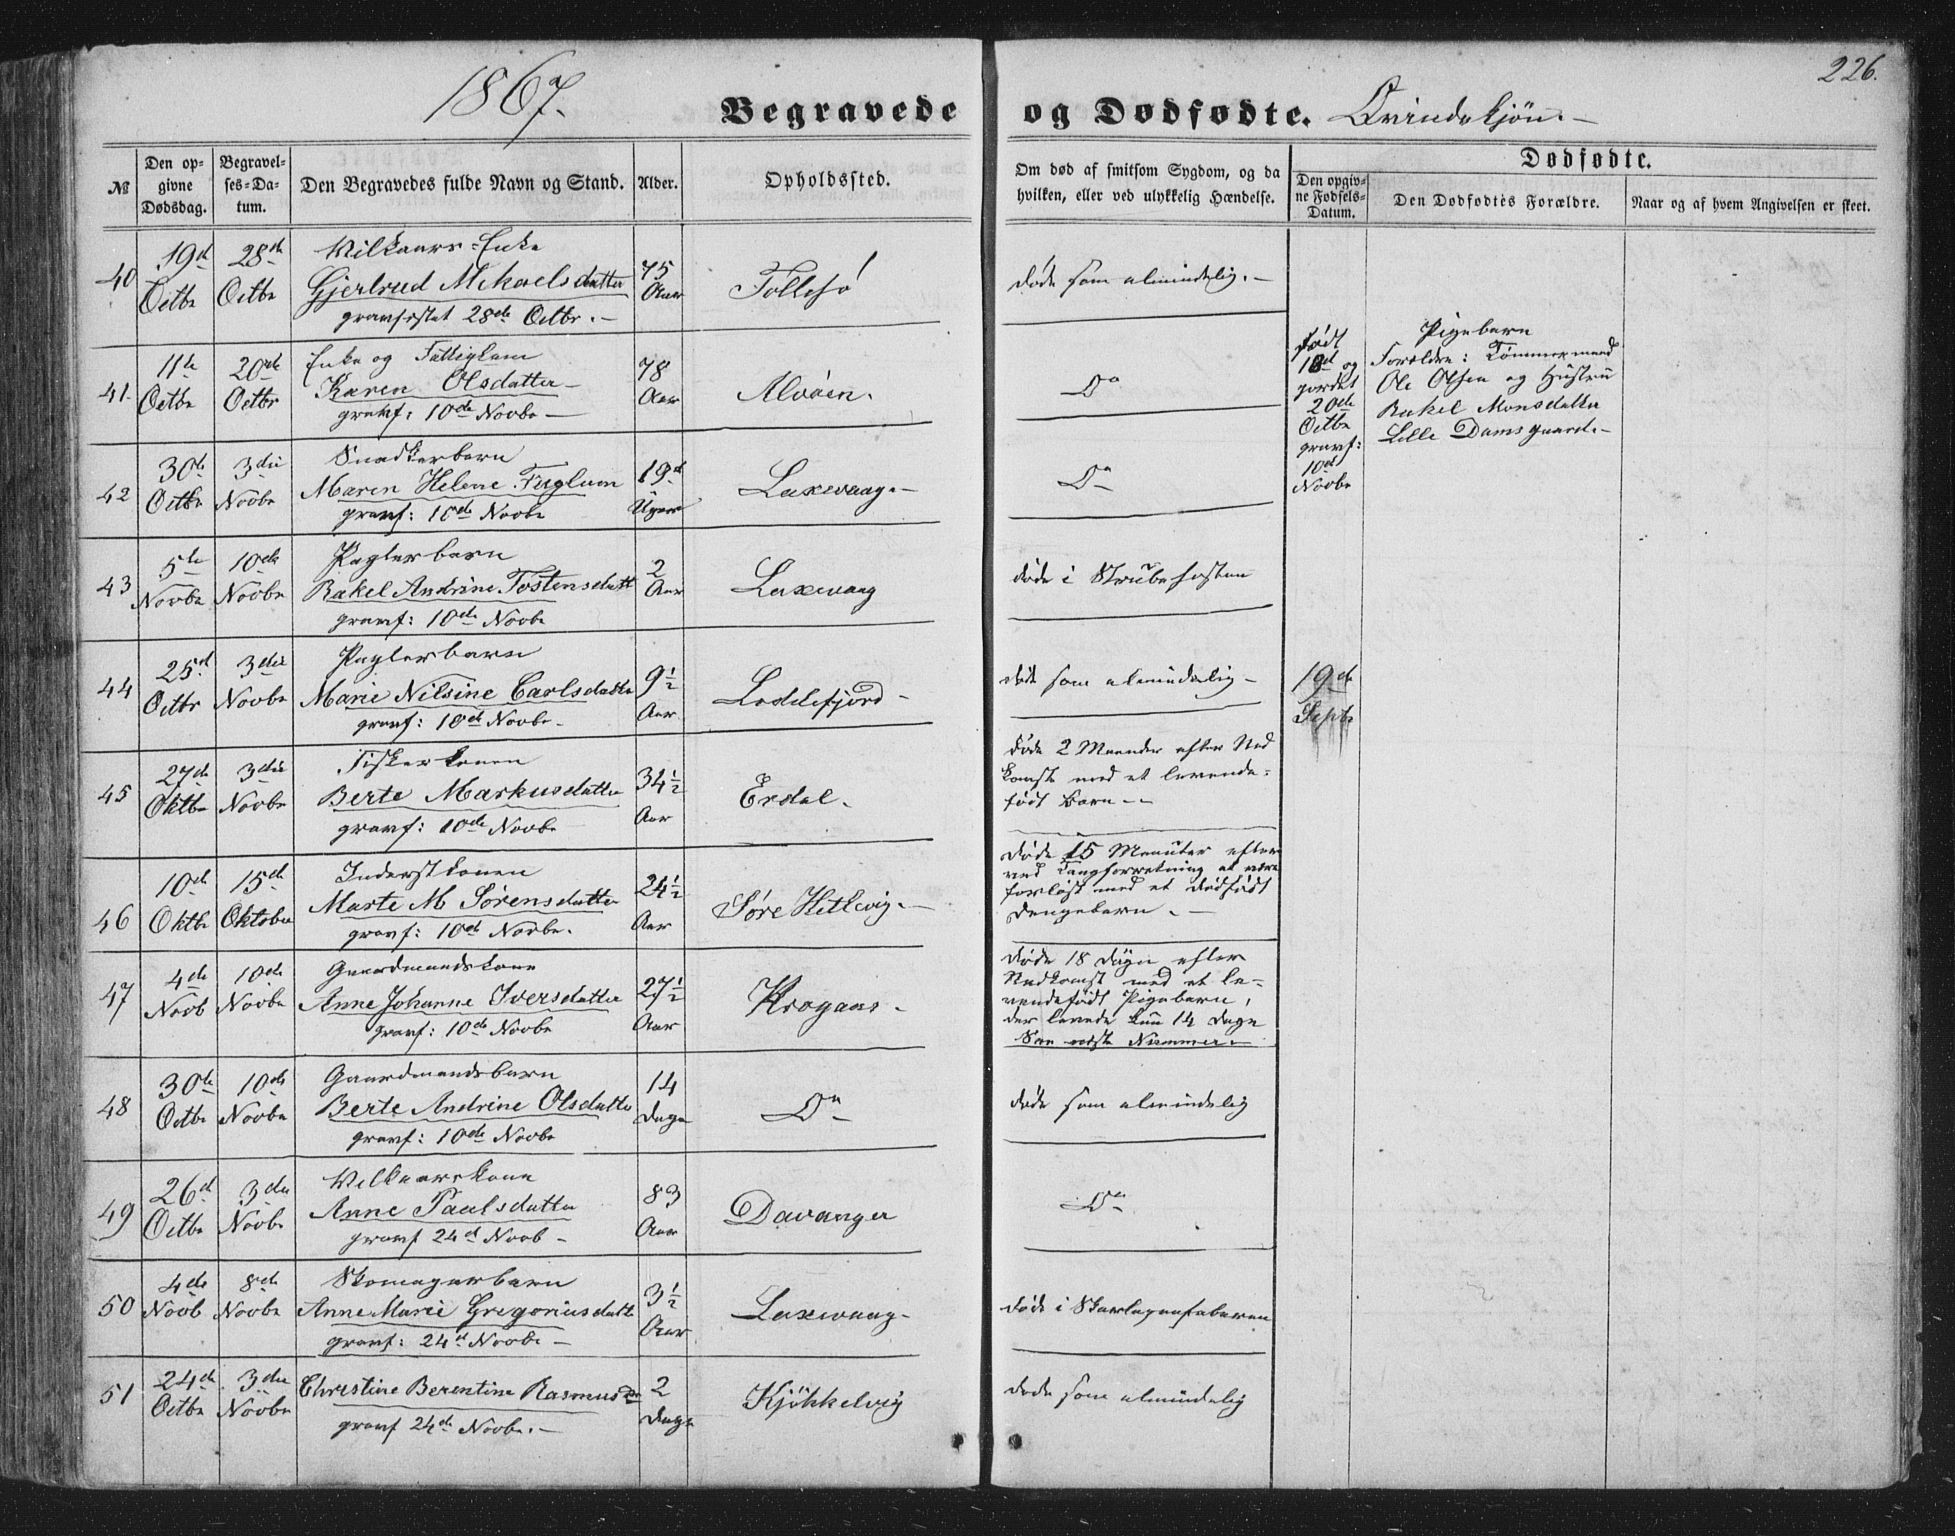 1867.
226.
Begravede og Dødfødte. Qvindekjøn.
№
Den opgivne Dødsdag.
Begravelses-Datum.
Den Begravedes fulde Navn og Stand.
Alder.
Opholdssted.
Om død af smitsom Sygdom, og da hvilken, eller ved ulykkelig Hændelse.
Dødfødte.
Den opgivne Fødsels-Datum.
Den Dødfødtes Forældre.
Naar og af hvem Angivelsen er skeet.
40 19de Octbr 28de Octbr
Vilkaars-Enke
Gjertrud Mikaelsdatter
gravfæstet 28de Octbr.
75 Aar
Follesø
døde som almindelig.
41 11te Octbr 20de Octbr
Enke og Fattiglem
Karen Olsdatter
gravf: 10de Novbr
78 Aar
Alvøen.
Do
42 30te Octbr 3die Novbr
Snedkerbarn
Maren Helene Fuglum
gravf: 10de Novbr
19 Uger
Laxevaag
Do
43 5te Novbr 10de Novbr
Pagterbarn
Rakel Andrine Tostensdatt
gravf: 10de Novbr
2 Aar
Laxevaag
døde i Strubehosten
44 25de Octbr 3die Novbr
Pagterbarn
Marie Nilsine Carlsdatter
gravf: 10de Novbr
9½ Aar
Loddefjord
død som almindelig
45 27de Oktbr 3die Novbr
Fiskerkonen
Berte Markusdatter
gravf: 10de Novbr
34½ Aar
Erdal.
døde 2 Maaneder efter Ned
komst med et levende-
født Barn
46 10de Oktbr 15de Oktober
Inderstkonen
Marte M Sørensdatter
gravf: 10de Novbr.
24½ Aar
Søre Hetlevig.
døde 15 Menuter efter
ved Tangforretning at være
forløst med et dødfødt
Drengebarn.
47 4de Novb 10de Novbr
Gaardmandskone
Anne Johanne Iversdatter
gravf: 10de Novbr
27½ Aar
Krogaas
døde 18 Dage efter
Nedkomst med et le-
vendefødt Pigebarn,
der levede kun 14 Dage
See næste Nummer
48 30te Octbr 10de Novbr
Gaardmandsbarn
Berte Andrine Olsdatter
gravf: 10de Novbr
14 Dage
Do
døde som almindelig
49 26de Octbr 3die Novbr
Vilkaarskone
Anne Paulsdatter
gravf 24de Novb
83 Aar
Davanger
Do
50 4de Novb 8de Novbr
Skomagerbarn
Anne Marie Gregoriusdatt
gravf: 24de Novbr
3½ Aar
Laxevaag
døde i Skarlagensfeberen
51 24de Octbr 3die Novbr
Christine Berentine Rasmusdr
gravf 24de Novbr.
2 Dage
Kjøkkelvig
døde som almindelig
Født
18de og
jordet
20de
Octbr
gravf:
10de
Novbr
Pigebarn
Forældre: Tømmermand
Ole Olsen og Hustru
Rakel Monsdatter
Lille Damsgaard.
19de
Septbr